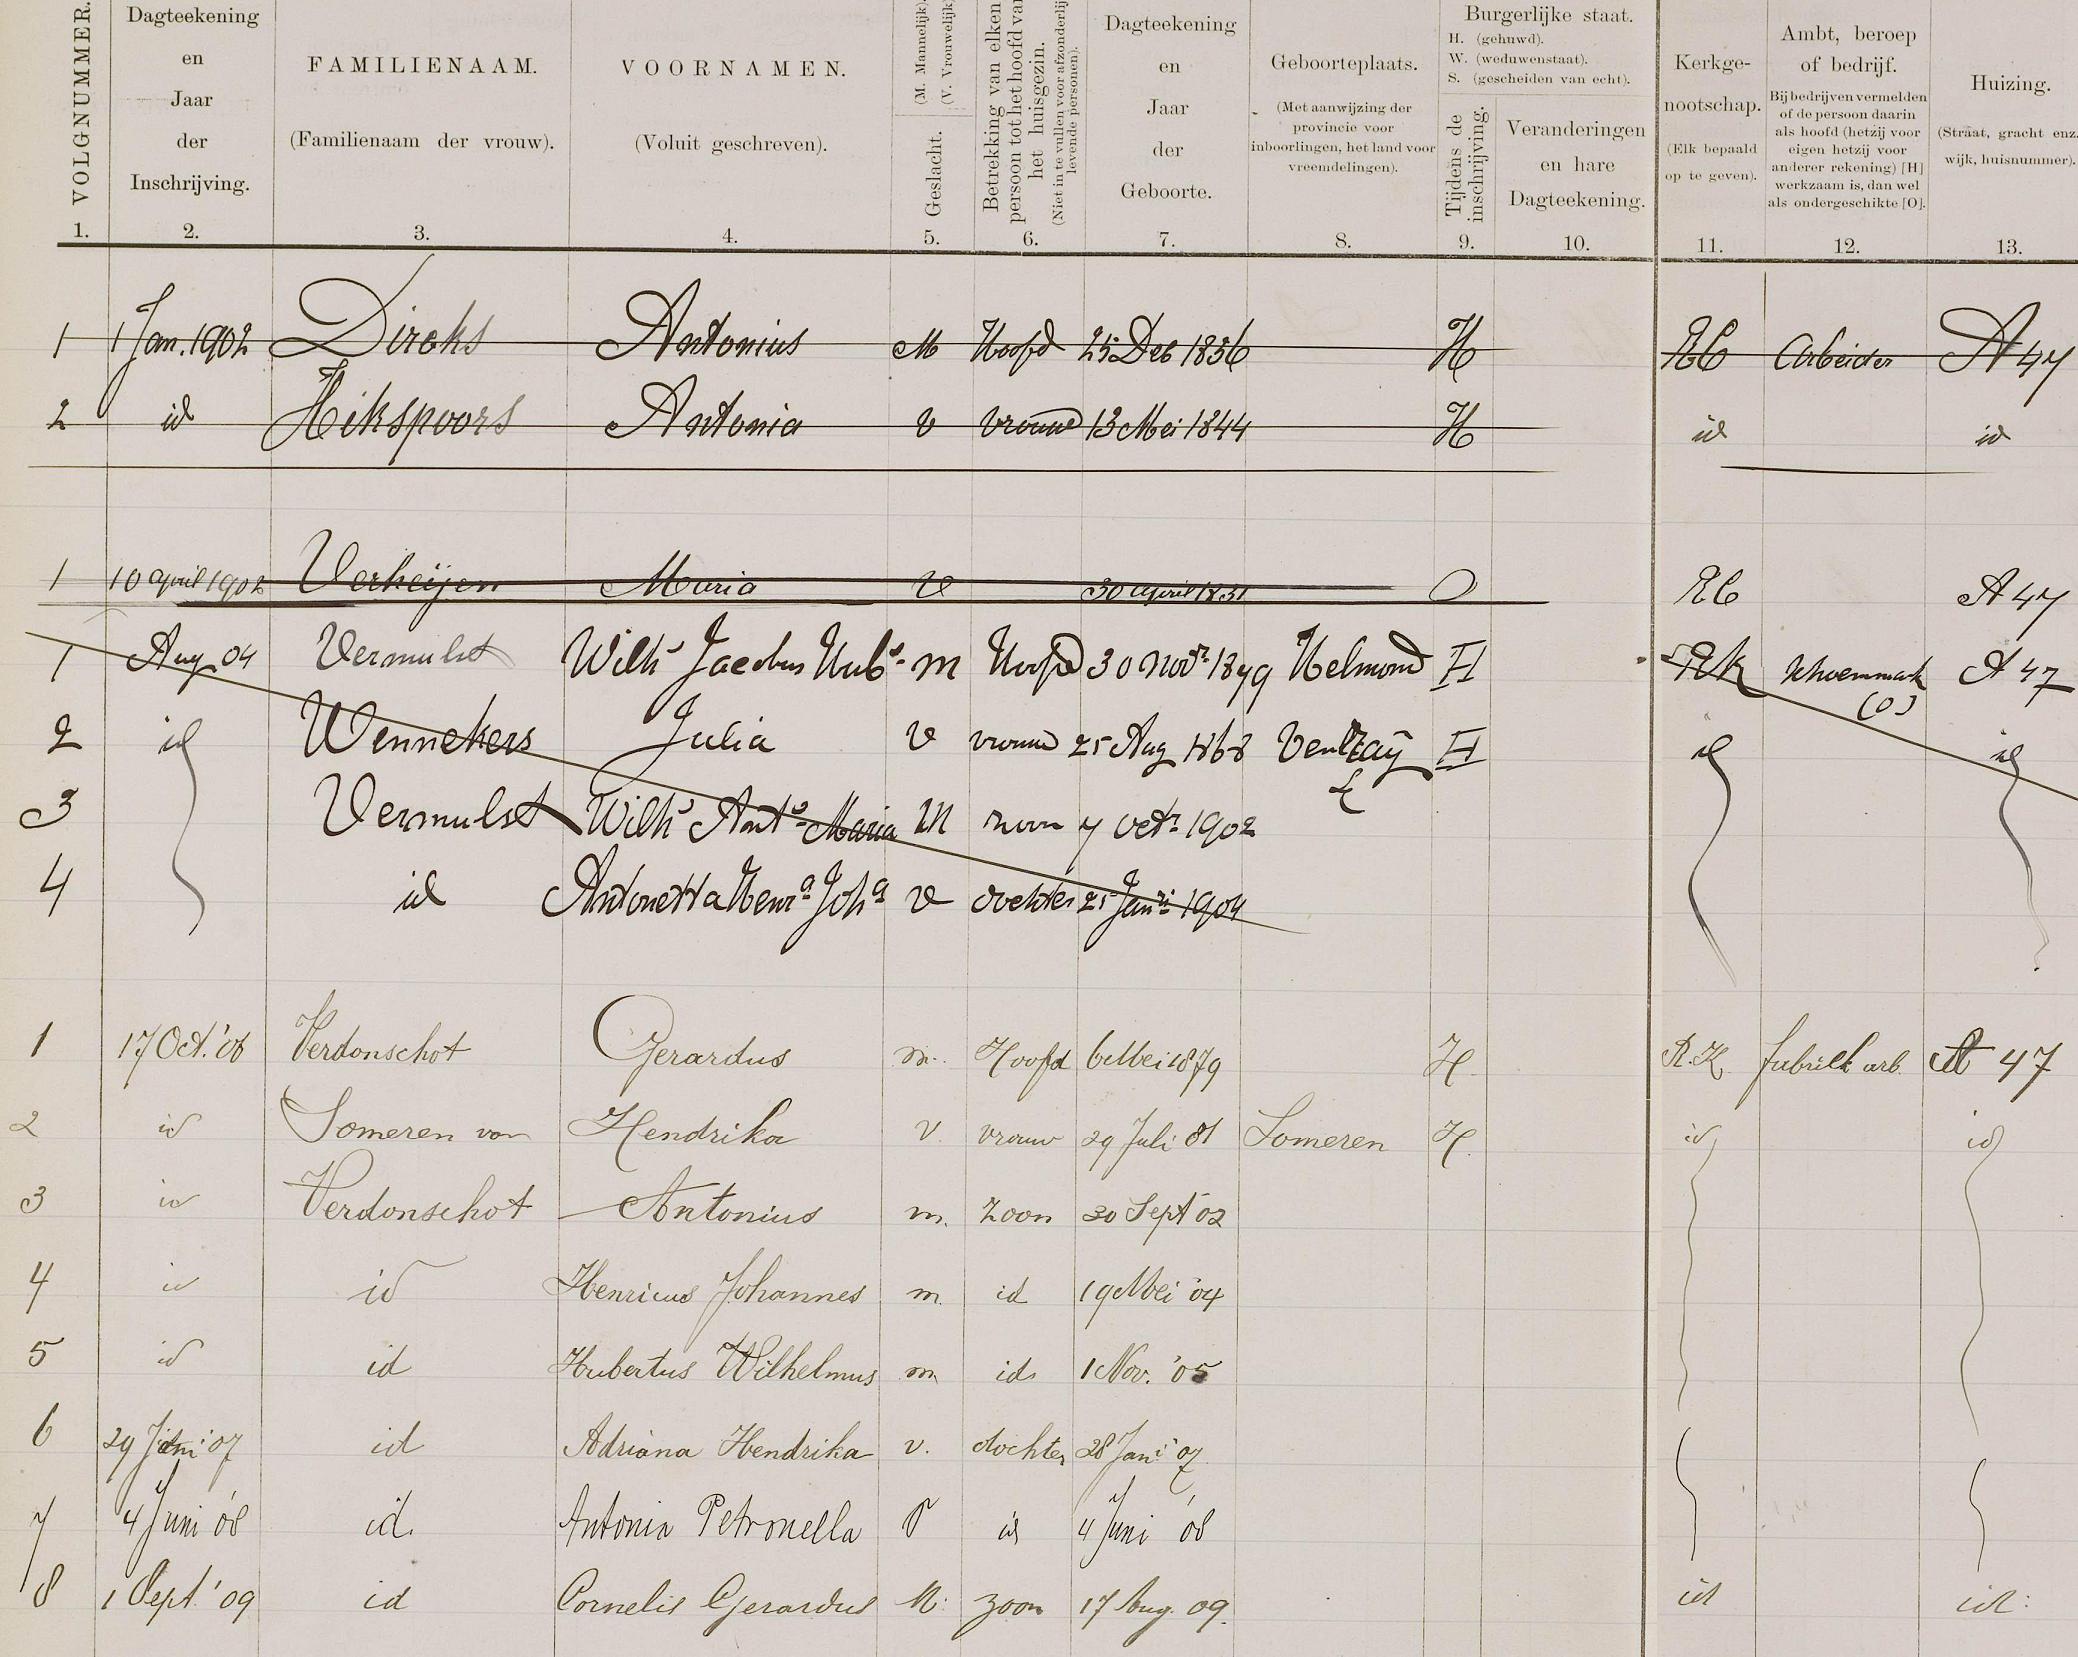 VOLGNUMMER.
1.
Dagteekening
en
Jaar
der
Inschrijving.
2.
FAMILIENAAM.
(Familienaam der vrouw).
3.
VOORNAMEN.
(Voluit geschreven).
4.
(M. Mannelijk).
(V. Vrouwelijk)
Geslacht.
5.
Betrekking van elken
persoon tot het hoofd van
het huisgezin.
(Niet in te vullen voor afzonderlijk
levende personen).
6.
Dagteekening
en
Jaar
der
Geboorte.
7.
Geboorteplaats.
(Met aanwijzing der
provincie voor
inboorlingen, het land voor
vreemdelingen).
8.
Burgerlijke staat.
H. (gehuwd).
W. (weduwenstaat).
S. (gescheiden van echt).
Tijdens de
inschrijving.
9.
Veranderingen
en hare
Dagteekening.
10.
Kerkge-
nootschap.
(Elk bepaald
op te geven).
11.
Ambt, beroep
of bedrijf.
Bij bedrijven vermelden
of de persoon daarin
als hoofd (hetzij voor
eigen hetzij voor
anderer rekening) [H]
werkzaam is, dan wel
als ondergeschikte [O].
12.
Huizing.
(Straat, gracht enz.
wijk, huisnummer).
13.
1 1 Jan. 1902 Dircks Antonius M Hoofd 25 Dec 1856 H RC Arbeider A 47
2 id Hikspoors Antonia V vrouw 13 Mei 1844 H id id
1 10 April 1902 Verheijen Maria V 30 april 1831 O RC A 47
1 Aug 04 Vermulst Wilhs Jacobus Hubs m Hoofd 30 Novr 1879 Helmond H RK schoenmak A 47
(O)
2 id Wennekers Julia V vrouw 25 Aug 1868 Venray H id id
L
3 Vermulst Wilhs Ants Maria M zoon 7 Octr 1902
4 id Antonetta Henra Joha V dochter 25 Janri 1904
1 17 Oct. '06 Verdonschot Gerardus m. Hoofd 6 Mei 1879 H. R.K. fabriek arb. A 47
2 id Someren van Hendrika V. vrouw 29 Juli 81 Someren H. id id
3 id Verdonschot Antonius m. zoon 30 Sept '02
4 id id Henricus Johannes m. id 19 Mei '04
5 id id Hubertus Wilhelmus m. id 1 Nov. '05
6 29 '07 id Adriana Hendrika v. dochter 28 Jani '07
7 4 Juni '08 id. Antonia Petronella V id 4 Juni '08
8 1 Sept. '09 id Cornelis Gerardus M. zoon 17 Aug. 09. id id.